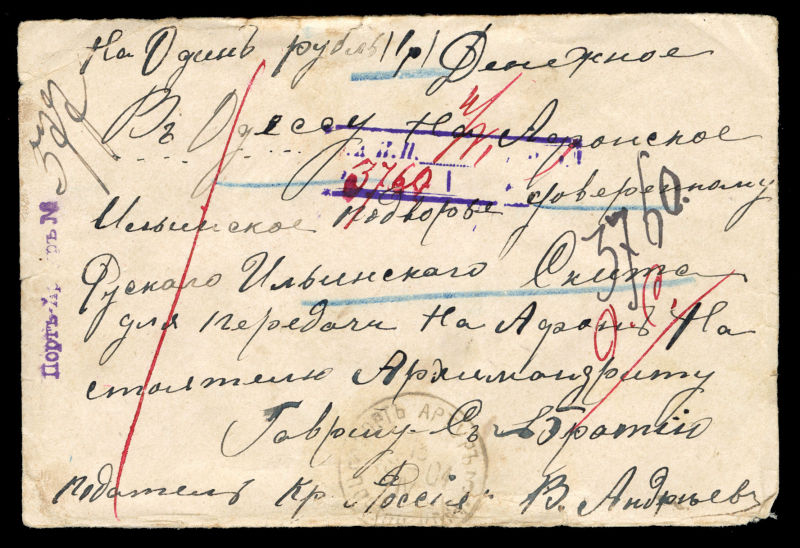 На Одинъ рубль (1р) Денежное
Въ Одессу На Афонское
3760
Ильинское подворье доверенному
3760.
Рускаго Ильинскаго Скита
для передачи на Афонъ На
стоятелю Архимандриту
Гаврилу Съ Братію
податель Кр. Россія В. Андрѣевъ
Портъ-А ръ №
ПОРТЪ АРТУРЪ
04